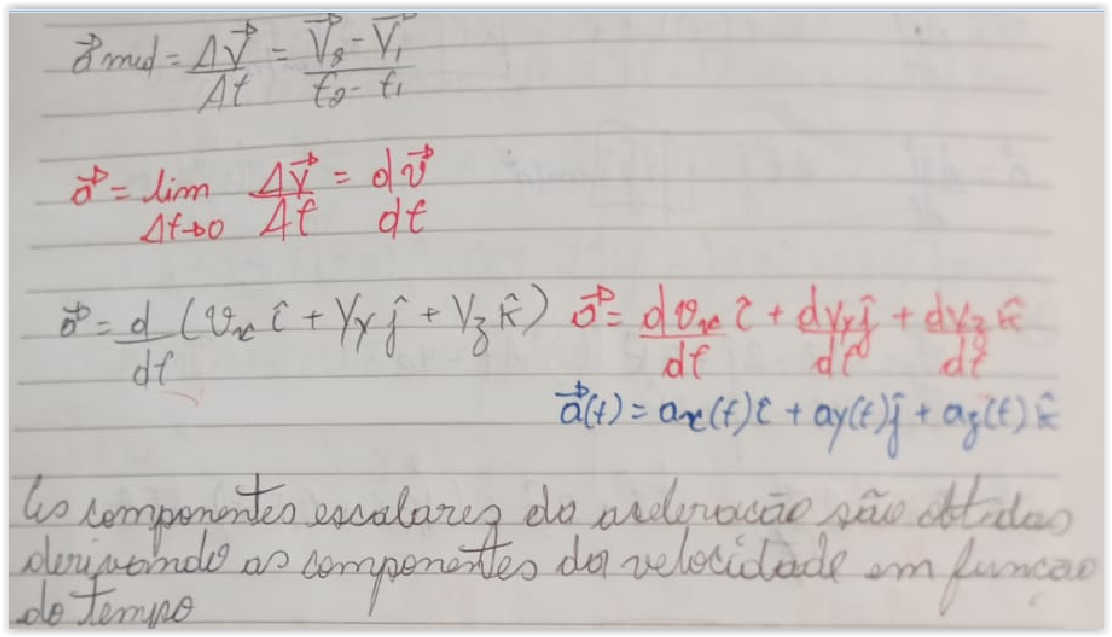 a⃗med = ΔV⃗/Δt = (V⃗₂ - V⃗₁)/(t₂ - t₁)
a⃗ = lim Δt→0 ΔV⃗/Δt = dv⃗/dt
a⃗ = d/dt (vₓ î + Vy ĵ + Vz k̂) a⃗ = dvₓ/dt î + dVy/dt ĵ + dVz/dt k̂
a⃗(t) = ax(t) î + ay(t) ĵ + az(t) k̂
As componentes escalares da aceleração são obtidas
derivando as componentes da velocidade em funcao
do tempo